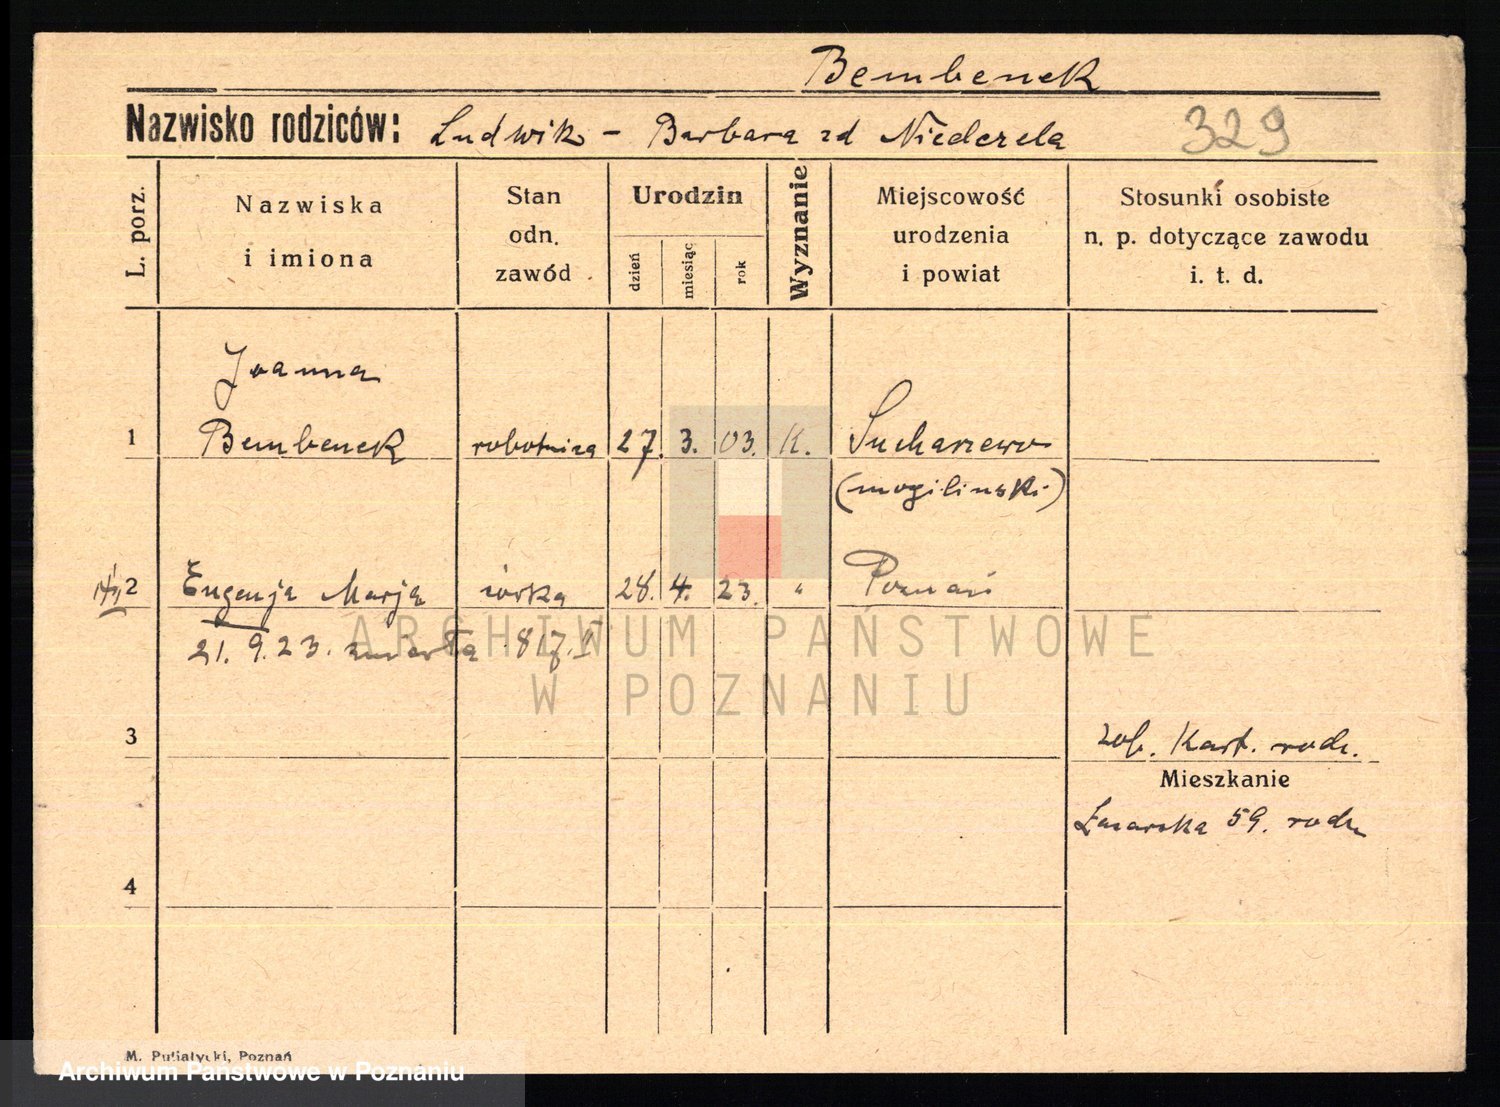 Bembenek
Nazwisko rodziców: Ludwik - Barbara zd Niedzela 329
L. porz.
Nazwiska
i imiona
Stan
odn.
zawód
Urodzin
dzień
miesiąc
rok
Wyznanie
Miejscowość
urodzenia
i powiat
Stosunki osobiste
n. p. dotyczące zawodu
i. t. d.
Joanna
1 Bembenek robotnica 27. 3. 03. K. Sucharzewo
(mogilinski)
2 Eugenja Marja córka 28. 4. 23. " Poznań
21. 9. 23. zmarła 817. II
ARCHIWUM PAŃSTWOWE
W POZNANIU
3 zob. Kart. rodz.
Mieszkanie
Łazarska 59. rodz.
4
M. Putiatycki, Poznań
Archiwum Państwowe w Poznaniu